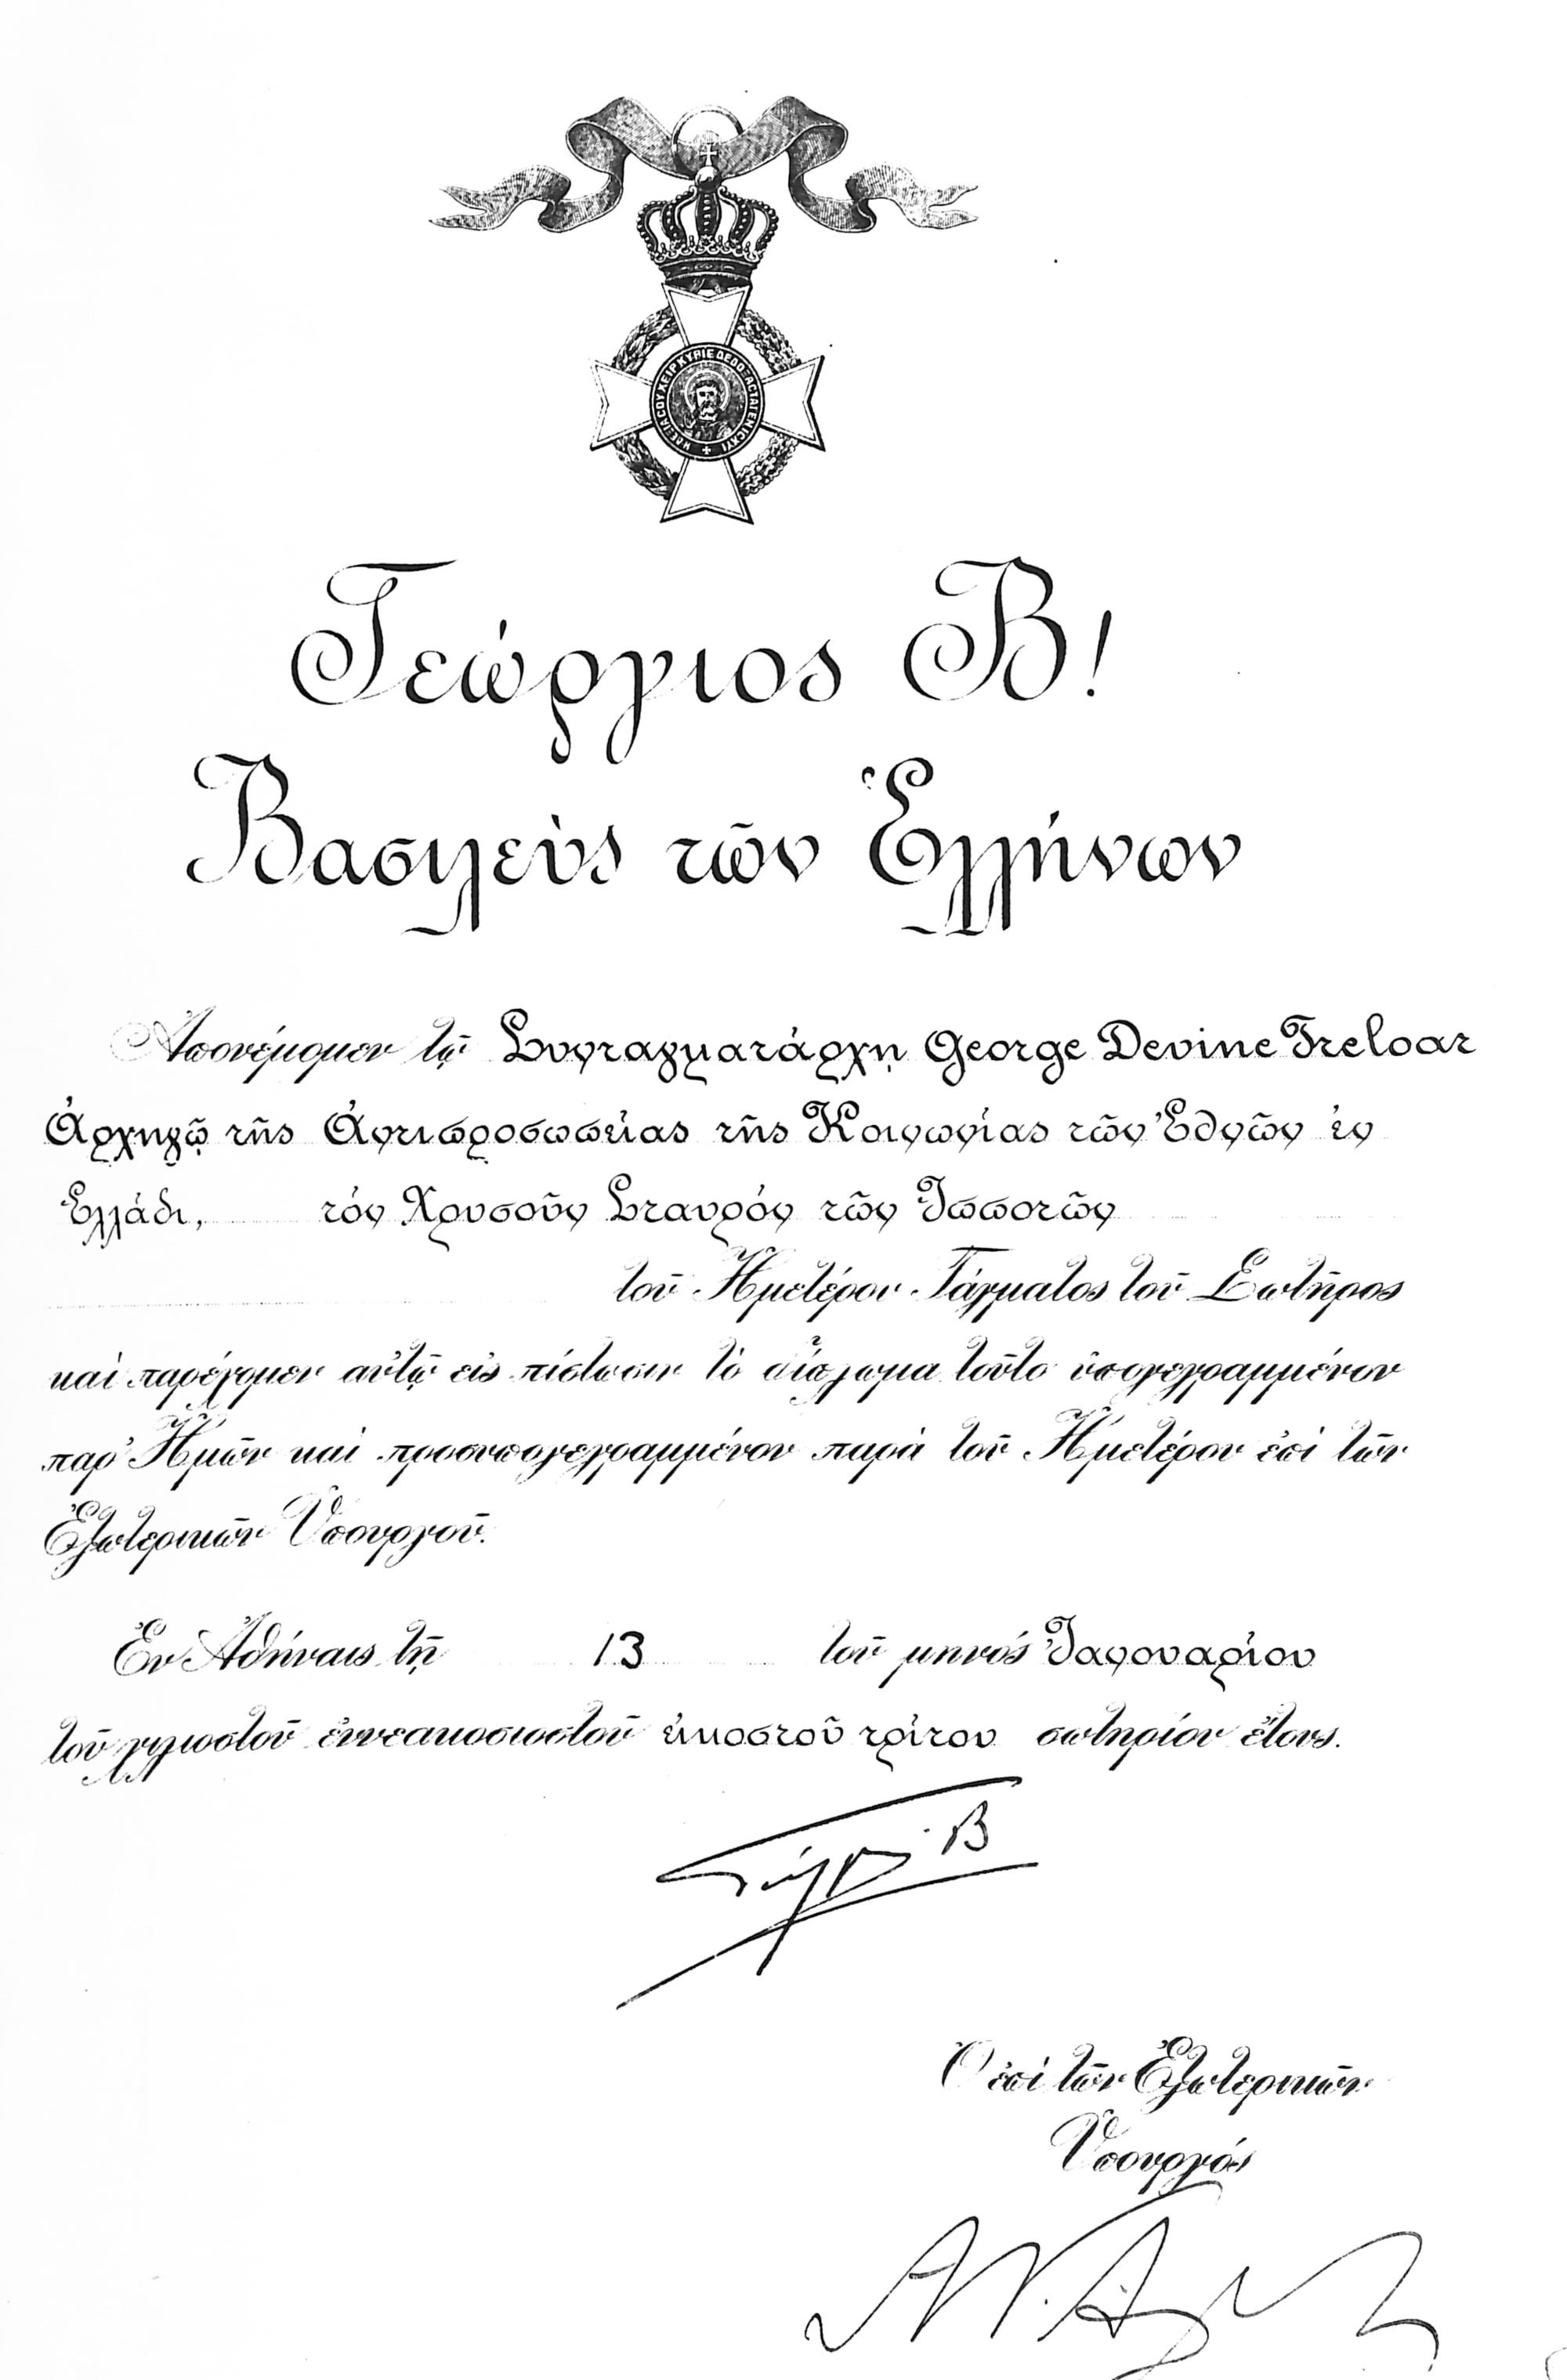 Η ΔΕΞΙΑ ΣΟΥ ΧΕΙΡ ΚΥΡΙΕ ΔΕΔΟΞΑΣΤΑΙ ΕΝ ΙΣΧΥΙ
Γεώργιος Β!
Βασιλεὺς τῶν Ἑλλήνων
Ἀπονέμομεν τῷ Συνταγματάρχῃ George Devine Treloar
Ἀρχηγῷ τῆς Ἀντιπροσωπείας τῆς Κοινωνίας τῶν Ἐθνῶν ἐν
Ἑλλάδι, τόν Χρυσοῦν Σταυρόν τῶν Ἱπποτῶν
τοῦ Ἡμετέρου Τάγματος τοῦ Σωτῆρος
καὶ παρέχομεν αὐτῷ εἰς πίστωσιν τὸ δίπλωμα τοῦτο ὑπογεγραμμένον
παρ' Ἡμῶν καὶ προσυπογεγραμμένον παρὰ τοῦ Ἡμετέρου ἐπὶ τῶν
Ἐξωτερικῶν Ὑπουργοῦ.
Ἐν Ἀθήναις τῇ 13 τοῦ μηνός Ἰανουαρίου
τοῦ χιλιοστοῦ ἐννεακοσιοστοῦ εἰκοστοῦ τρίτου σωτηρίου ἔτους.
Β
Ὁ ἐπὶ τῶν Ἐξωτερικῶν
Ὑπουργός